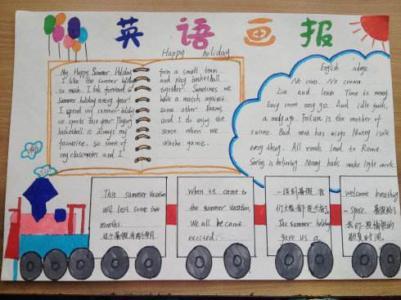 英语画报
Happy holiday
My Happy Summer Holiday
I like the summer holiday
so much. I look forward to
summer holiday every year!
I spend my summer holiday
on sports this year. Playing
basketball is always my
favourite, so some of
my classmates and I
form a small team
and play basketball
together. Sometimes we
hold a match against
some other teams,
and I do enjoy the
sense when we
win the game.
English adage
No cross, No crown.
Live and learn Time is money
Easy come easy go. And idle youth,
a needy age. Failure is the mother of
success. Bad news has wings Money makes
every thing. All roads lead to Rome.
Seeing is believing Many hands make light work.
This summer vacation
will last some two
months.
When it came to
the summer vacation,
We all be came
excited.
The summer holiday
gave us a
welcome breathing
-space.